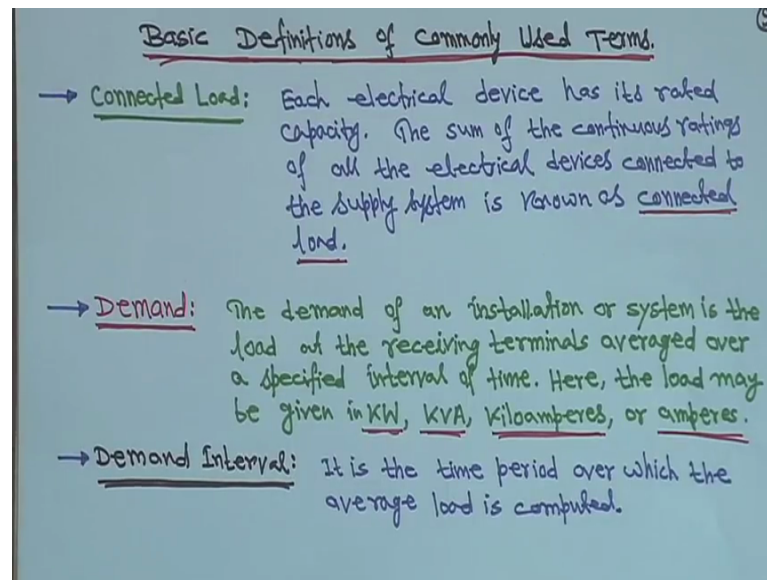 Basic Definitions of Commonly Used Terms.
→ Connected Load: Each electrical device has its rated
capacity. The sum of the continuous ratings
of all the electrical devices connected to
the supply system is known as connected
load.
→ Demand: The demand of an installation or system is the
load at the receiving terminals averaged over
a specified interval of time. Here, the load may
be given in KW, KVA, Kiloamperes, or amperes.
→ Demand Interval: It is the time period over which the
average load is computed.